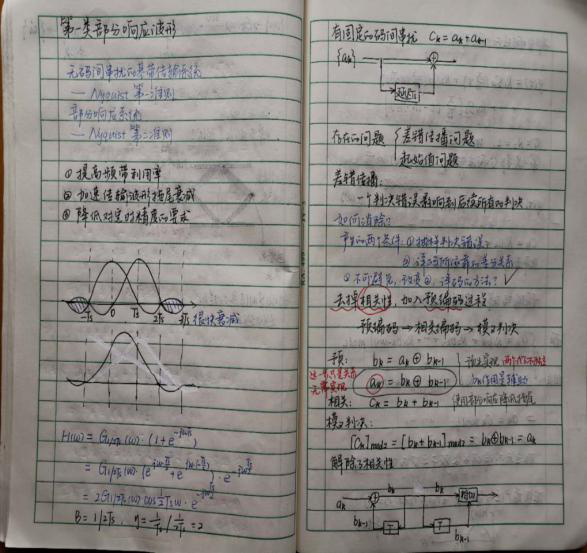 第一类部分响应波形
无码间串扰的基带传输系统
— Nyquist 第一准则
部分响应系统
— Nyquist 第二准则
① 提高频带利用率
② 加速传输波形拖尾衰减
③ 降低对定时精度的要求
-Ts 0 Ts 2Ts 3Ts 很快衰减
H(ω) = G1/2Ts(ω) · (1+e^-jωTs)
= G1/2Ts(ω) · (e^jωTs/2 + e^-jωTs/2) · e^-jωTs/2
= 2G1/2Ts(ω) cos ½Tsω · e^-jωTs/2
B = 1/2Ts , η = 1/Ts / 1/2Ts = 2
有固定的码间串扰 Ck = ak + ak-1
{ak}
延迟Ts
存在的问题 { 差错传播问题
起始值问题
差错传播:
一个判决错误影响到后续所有的判决
如何消除?
产生的两个条件: ① 抽样判决错误
②
① 不可避免, 改变 ②, 译码的方法? ✓
去掉相关性, 加入预编码过程
预编码 → 相关编码 → 模2判决
预: bk = ak ⊕ bk-1
ak = bk ⊕ bk-1
无需实现
相关: Ck = bk + bk-1
模2判决:
[Ck]mod2 = [bk + bk-1]mod2 = bk⊕bk-1 = ak
解除了相关性
ak bk bk
bk-1 T T bk-1